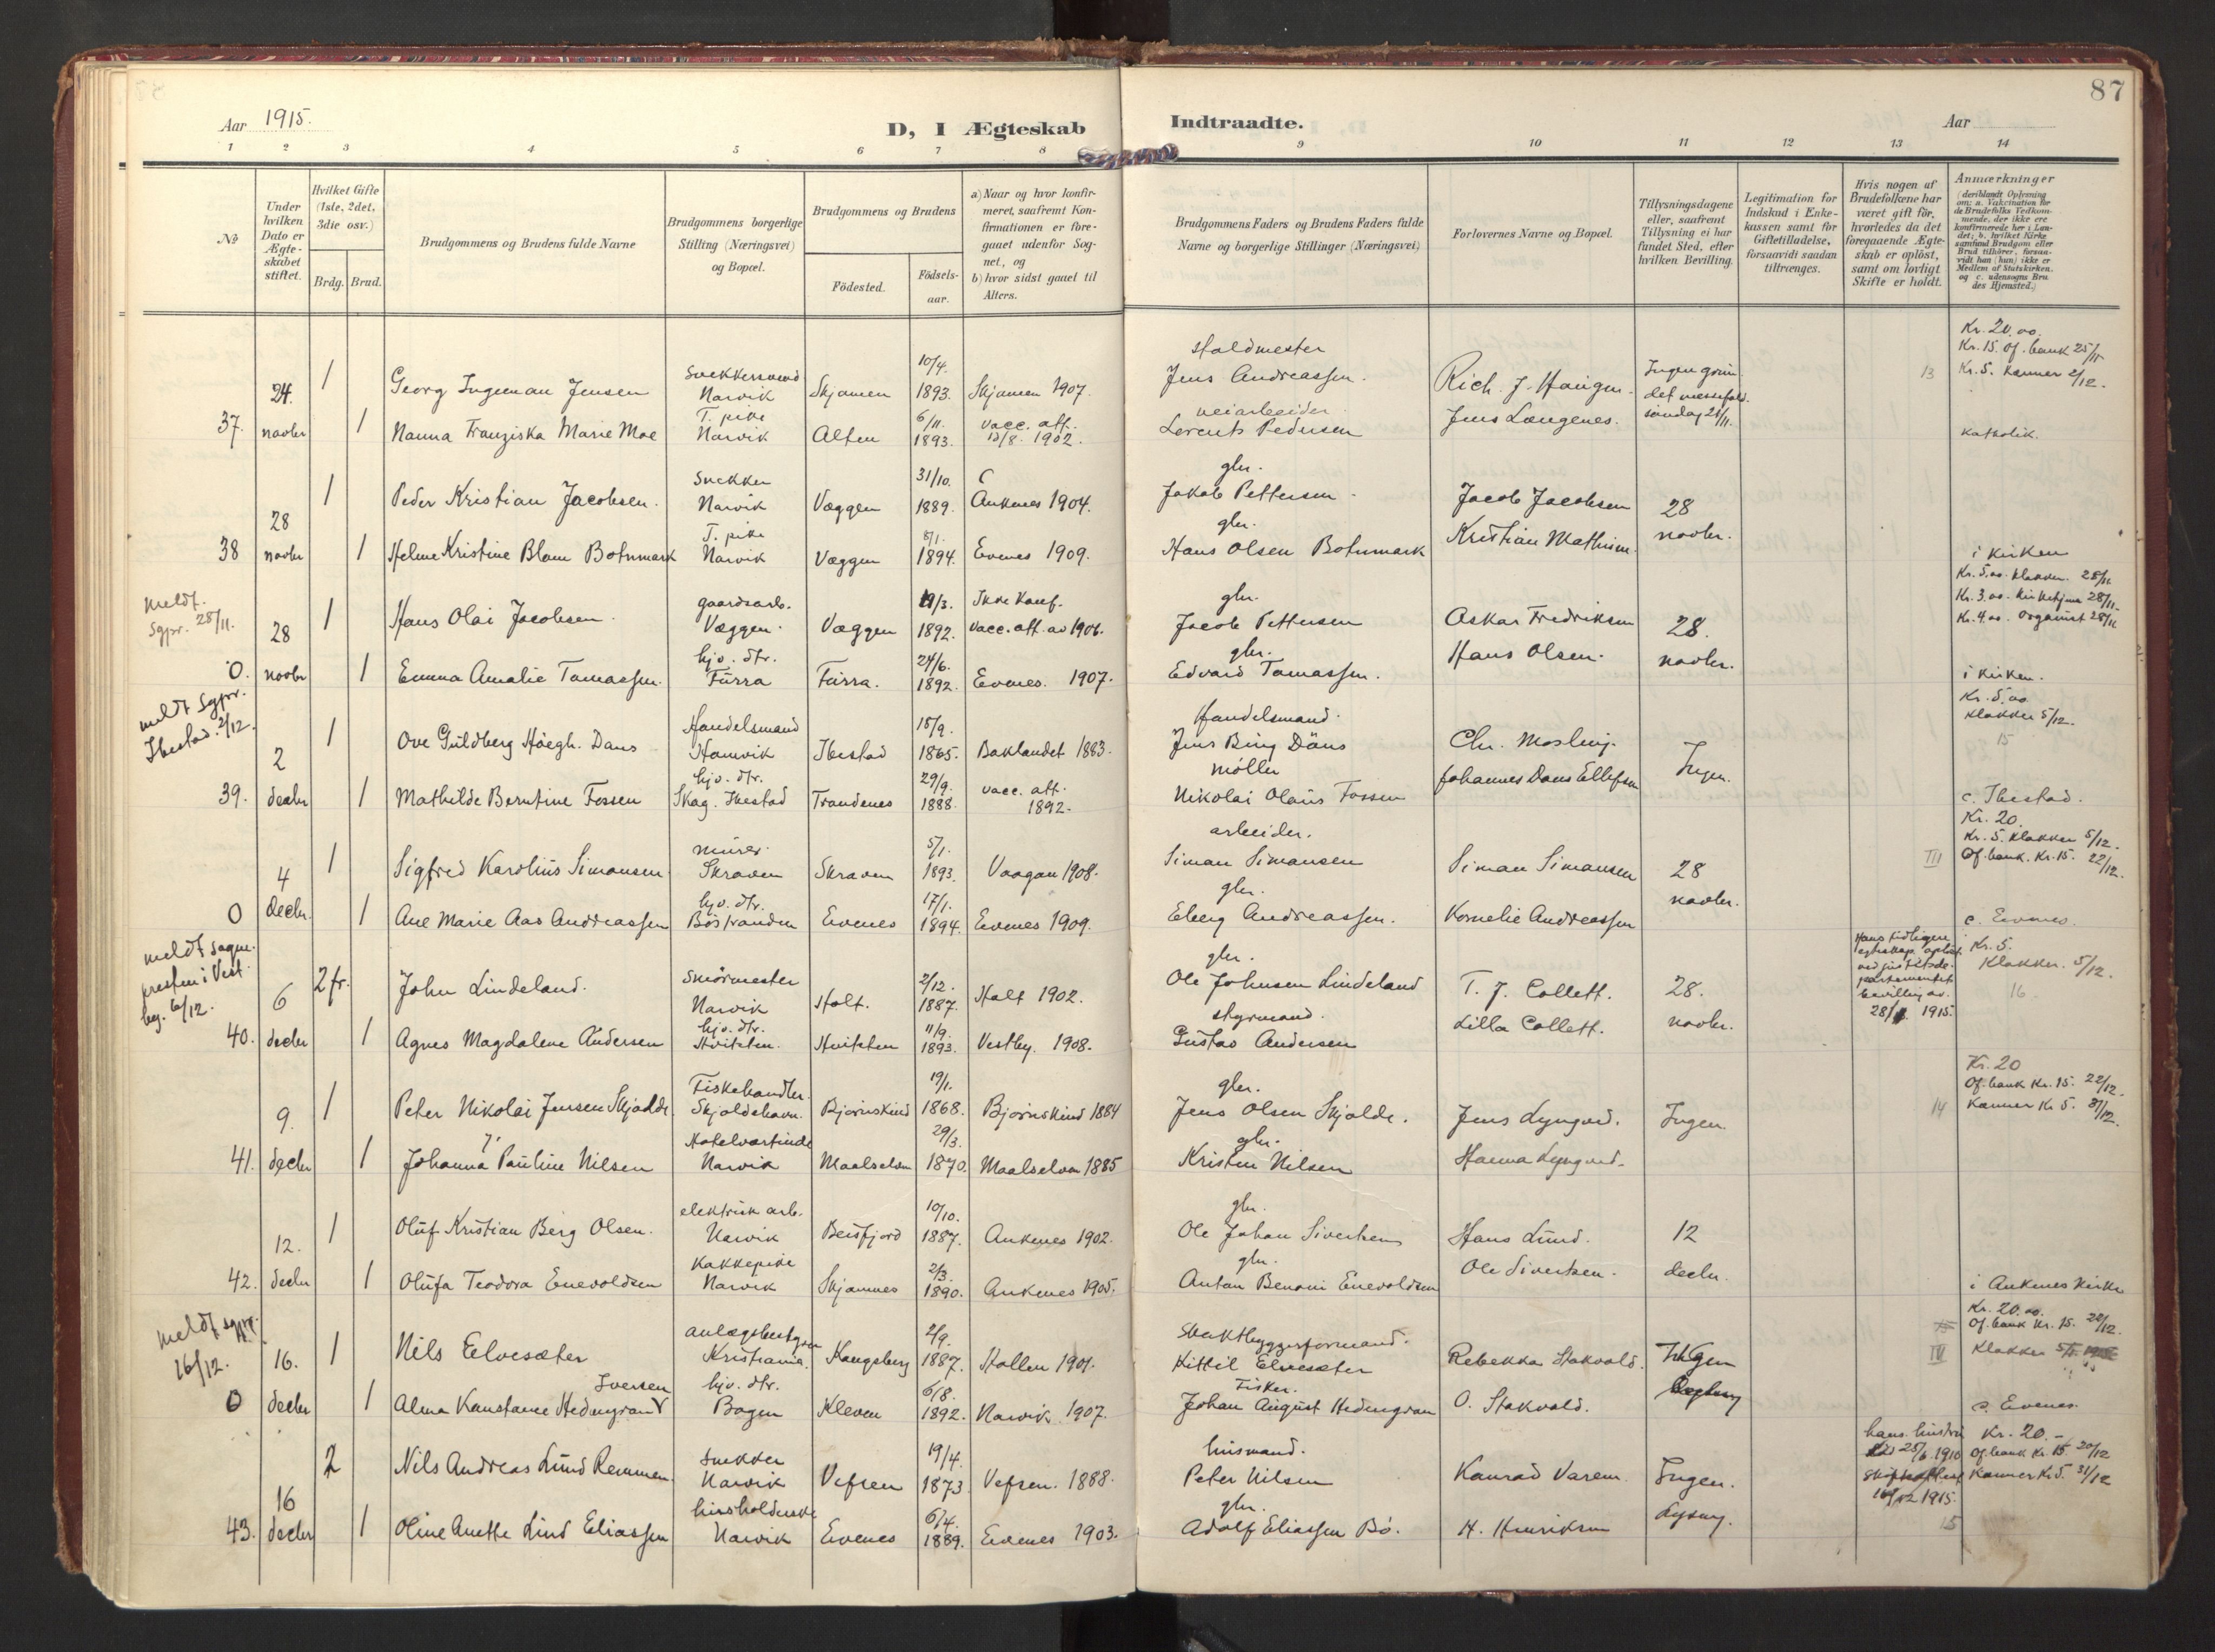 87
Aar 1915.
D, I Ægteskab Indtraadte.
Aar
1 2 3 4 5 6 7 8 9 10 11 12 13 14
No
Under hvilken Dato er Ægteskabet stiftet.
Hvilket Gifte (1ste, 2det, 3die osv.)
Brdg. Brud.
Brudgommens og Brudens fulde Navne
Brudgommens borgerlige Stilling (Næringsvei) og Bopæl.
Brudgommens og Brudens
Födested.
Födsels-aar.
a) Naar og hvor konfirmeret, saafremt Konfirmationen er foregaaet udenfor Sognet, og
b) hvor sidst gaaet til Alters.
Brudgommens Faders og Brudens Faders fulde Navne og borgerlige Stillinger (Næringsvei)
Forlovernes Navne og Bopæl.
Tillysningsdagene eller, saafremt Tillysning ei har fundet Sted, efter hvilken Bevilling.
Legitimation for Indskud i Enkekassen samt for Giftetilladelse, forsaavidt saadan tiltrænges.
Hvis nogen af Brudefolkene har været gift för, hvorledes da det foregaaende Ægteskab er oplöst, samt om lovligt Skifte er holdt.
Anmærkninger
(deriblandt Oplysning om: a. Vakcination for de Brudefolks Vedkommende, der ikke ere konfirmerede her i Landet; b. hvilket Kirkesamfund Brudgom eller Brud tilhörer, forsaavidt han (hun) ikke er Medlem af Statskirken, og c. udensogns Brudes Hjemsted.)
37. 24. novbr
1 Georg Ingeman Jensen Snekkersvend Narvik Skjomen 10/4. 1893. Skjomen 1907.
Staldmester Jens Andreassen.
Rich. J. Haugen. Jens Langenes.
søndag 21/11.
13
Kr. 20.00.
Kr. 15. Of. bank 25/11
Kr. 5. Kanner 2/12.
1 Nanna Franziska Marie Moe T. pike Narvik Alten 6/11. 1893. vacc. att. 13/8. 1902.
veiarbeider. Lorents Pedersen
katholik.
38 28 novbr
1 Peder Kristian Jacobsen. Snekker Narvik Væggen 31/10. 1889. Ankenes 1904.
gbr. Jakob Pettersen
Jacob Jacobsen Kristian Mathisen.
28 novbr.
1 Helene Kristine Blom Botnmark T. pike Narvik Væggen 8/1. 1894. Evenes 1909.
gbr. Hans Olsen Botnmark
i kirken
meldt. Sgpr. 28/11.
0. 28 novbr
1 Hans Olai Jacobsen. gaardsarb. Væggen. Væggen 1892. Ikke konf. vacc. att. av 1906.
gbr. Jacob Pettersen
Oskar Fredriksen Hans Olsen.
28. novbr.
Kr. 5.00. klokker. 28/11
Kr. 3.00. kirketjener 28/11.
Kr. 4.00. Organist 28/11
1 Emma Amalie Tomassen. hjv. dtr. Furra Furra. 24/6. 1892. Evenes. 1907.
gbr. Edvard Tomassen.
i kirken.
meldt Sgpr. Ibestad. 2/12.
39. 2 decbr
1 Ove Guldberg Høegh. Dans Handelsmand Hamvik Ibestad 15/9. 1865. Baklandet 1883.
Handelsmand. Jens Bing Dans
Chr. Mosling. Johannes Dans Ellefsen
Ingen.
Kr. 5.00 klokker 5/12.
15
1 Mathilde Berntine Fossen hjv. dtr. Skog. Ibestad Trondenes 29/9. 1888. vacc. att. 1892.
møller Nikolai Olaus Fossen
c. Ibestad.
0 4 decbr.
1 Sigfred Karolius Simonsen murer. Skroven Skroven 5/1. 1893. Vaagan 1908.
arbeider. Simon Simonsen
Simon Simonsen Kornelie Andreassen
28 novbr.
III
Kr. 20.
Kr. 5. klokker 5/12.
Of. bank. Kr. 15. 22/12.
1 Ane Marie Aas Andreassen hjv. dtr. Bostranden Evenes 17/1. 1894. Evenes 1909.
gbr. Eberg Andreassen.
c. Evenes.
meldt sogne- presten i Vest- by. 6/12.
40. 6 decbr
2 fr. John Lindeland. Smørmester Narvik Holt. 2/12. 1887. Holt 1902.
gbr. Ole Johnsen Lindeland
T. J. Collett. Lilla Collett.
28. novbr.
Hans tidligere egteskap opløst ved justitsde- partementets bevilling av. 1915.
Kr. 5. Klokker. 5/12.
16
1 Agnes Magdalene Andersen hjv. dtr. Hvitsten. Hvitsten 11/9. 1893. Vestby. 1908.
styrmand. Gustav Andersen
41. 9. decbr
1 Peter Nikolai Jensen Skjolde. Fiskehandler. Skjoldehavn. Bjørnskind 19/1. 1868. Bjørnskind 1884
gbr. Jens Olsen Skjolde.
Jens Lyngved. Hanna Lyngved.
Ingen
14
Kr. 20
Of. bank Kr. 15. 22/12.
Kanner Kr 5. 31/12.
1 Johanna Pauline Nilsen Hotelvertinde Narvik Maalselven 29/3. 1870. Maalselven 1885
gbr. Kristen Nilsen
42. 12. decbr
1 Oluf Kristian Berg Olsen. elektrisk arb. Narvik Beisfjord 10/10. 1887. Ankenes 1902.
gbr. Ole Johan Sivertsen
Hans Lund. Ole Sivertsen.
12 decbr.
1 Olufa Teodora Enevoldsen Kokkepike Narvik Skjomnes 2/3. 1890. Ankenes 1905.
gbr. Anton Benoni Enevoldsen
i Ankenes kirke
meldt sgpr. 16/12.
0 16. decbr
1 Nils Elvesæter Kristiania. Kongsberg 2/9. 1887. 1901.
Kittil Elvesæter
Rebekka Stokvold. O. Stokvold.
Ingen
IV
Kr. 20.00.
Of. bank Kr. 15. 22/12.
Klokker
1 Alma Konstance Hedengran Iversen hjv. dtr. Bogen Kleven 6/8. 1892. Narvik 1907.
Fisker. Johan August Hedengran
c. Evenes.
43. 16 decbr
2 Nils Andreas Lund Remmen. Snekker Narvik Vefsen 19/4. 1873 Vefsen. 1888.
husmand. Peter Nilsen
Konrad Varem. H. Henriksen
Ingen. Lysning.
hans hustru 1910 1915.
15
Kr. 20.-
Of. bank Kr. 15. 20/12
Kanner Kr 5. 31/12
1 Oline Anette Lind Eliassen husholderske Narvik Evenes 6/4. 1889. Evenes 1903.
gbr. Adolf Eliassen Bø.